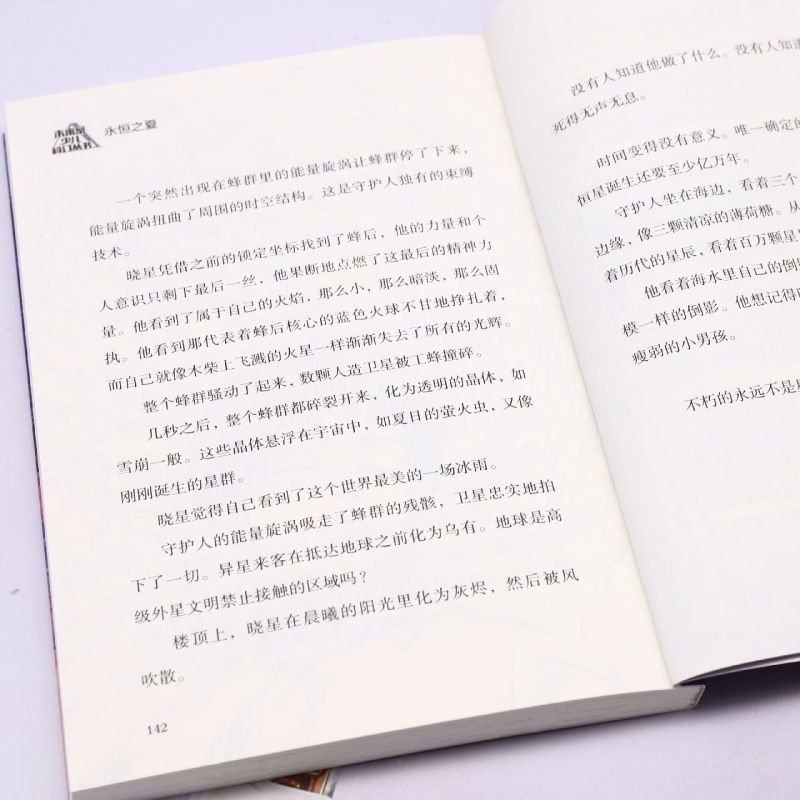 未来派
少儿
科幻丛书
永恒之夏
一个突然出现在蜂群里的能量旋涡让蜂群停了下来，
能量旋涡扭曲了周围的时空结构。这是守护人独有的束缚
技术。
晓星凭借之前的锁定坐标找到了蜂后，他的力量和个
人意识只剩下最后一丝，他果断地点燃了这最后的精神力
量。他看到了属于自己的火焰，那么小，那么暗淡，那么固
执。他看到那代表着蜂后核心的蓝色火球不甘地挣扎着，
而自己就像木柴上飞溅的火星一样渐渐失去了所有的光辉。
整个蜂群骚动了起来，数颗人造卫星被工蜂撞碎。
几秒之后，整个蜂群都碎裂开来，化为透明的晶体，如
雪崩一般。这些晶体悬浮在宇宙中，如夏日的萤火虫，又像
刚刚诞生的星群。
晓星觉得自己看到了这个世界最美的一场冰雨。
守护人的能量旋涡吸走了蜂群的残骸，卫星忠实地拍
下了一切。异星来客在抵达地球之前化为乌有。地球是高
级外星文明禁止接触的区域吗？
楼顶上，晓星在晨曦的阳光里化为灰烬，然后被风
吹散。
142
没有人知道他做了什么。没有人知
死得无声无息。
时间变得没有意义。唯一确定的
恒星诞生还要至少亿万年。
守护人坐在海边，看着三个
边缘，像三颗清凉的薄荷糖。从
着历代的星辰，看着百万颗星
他看着海水里自己的倒
模一样的倒影。他想记得
瘦弱的小男孩。
不朽的永远不是